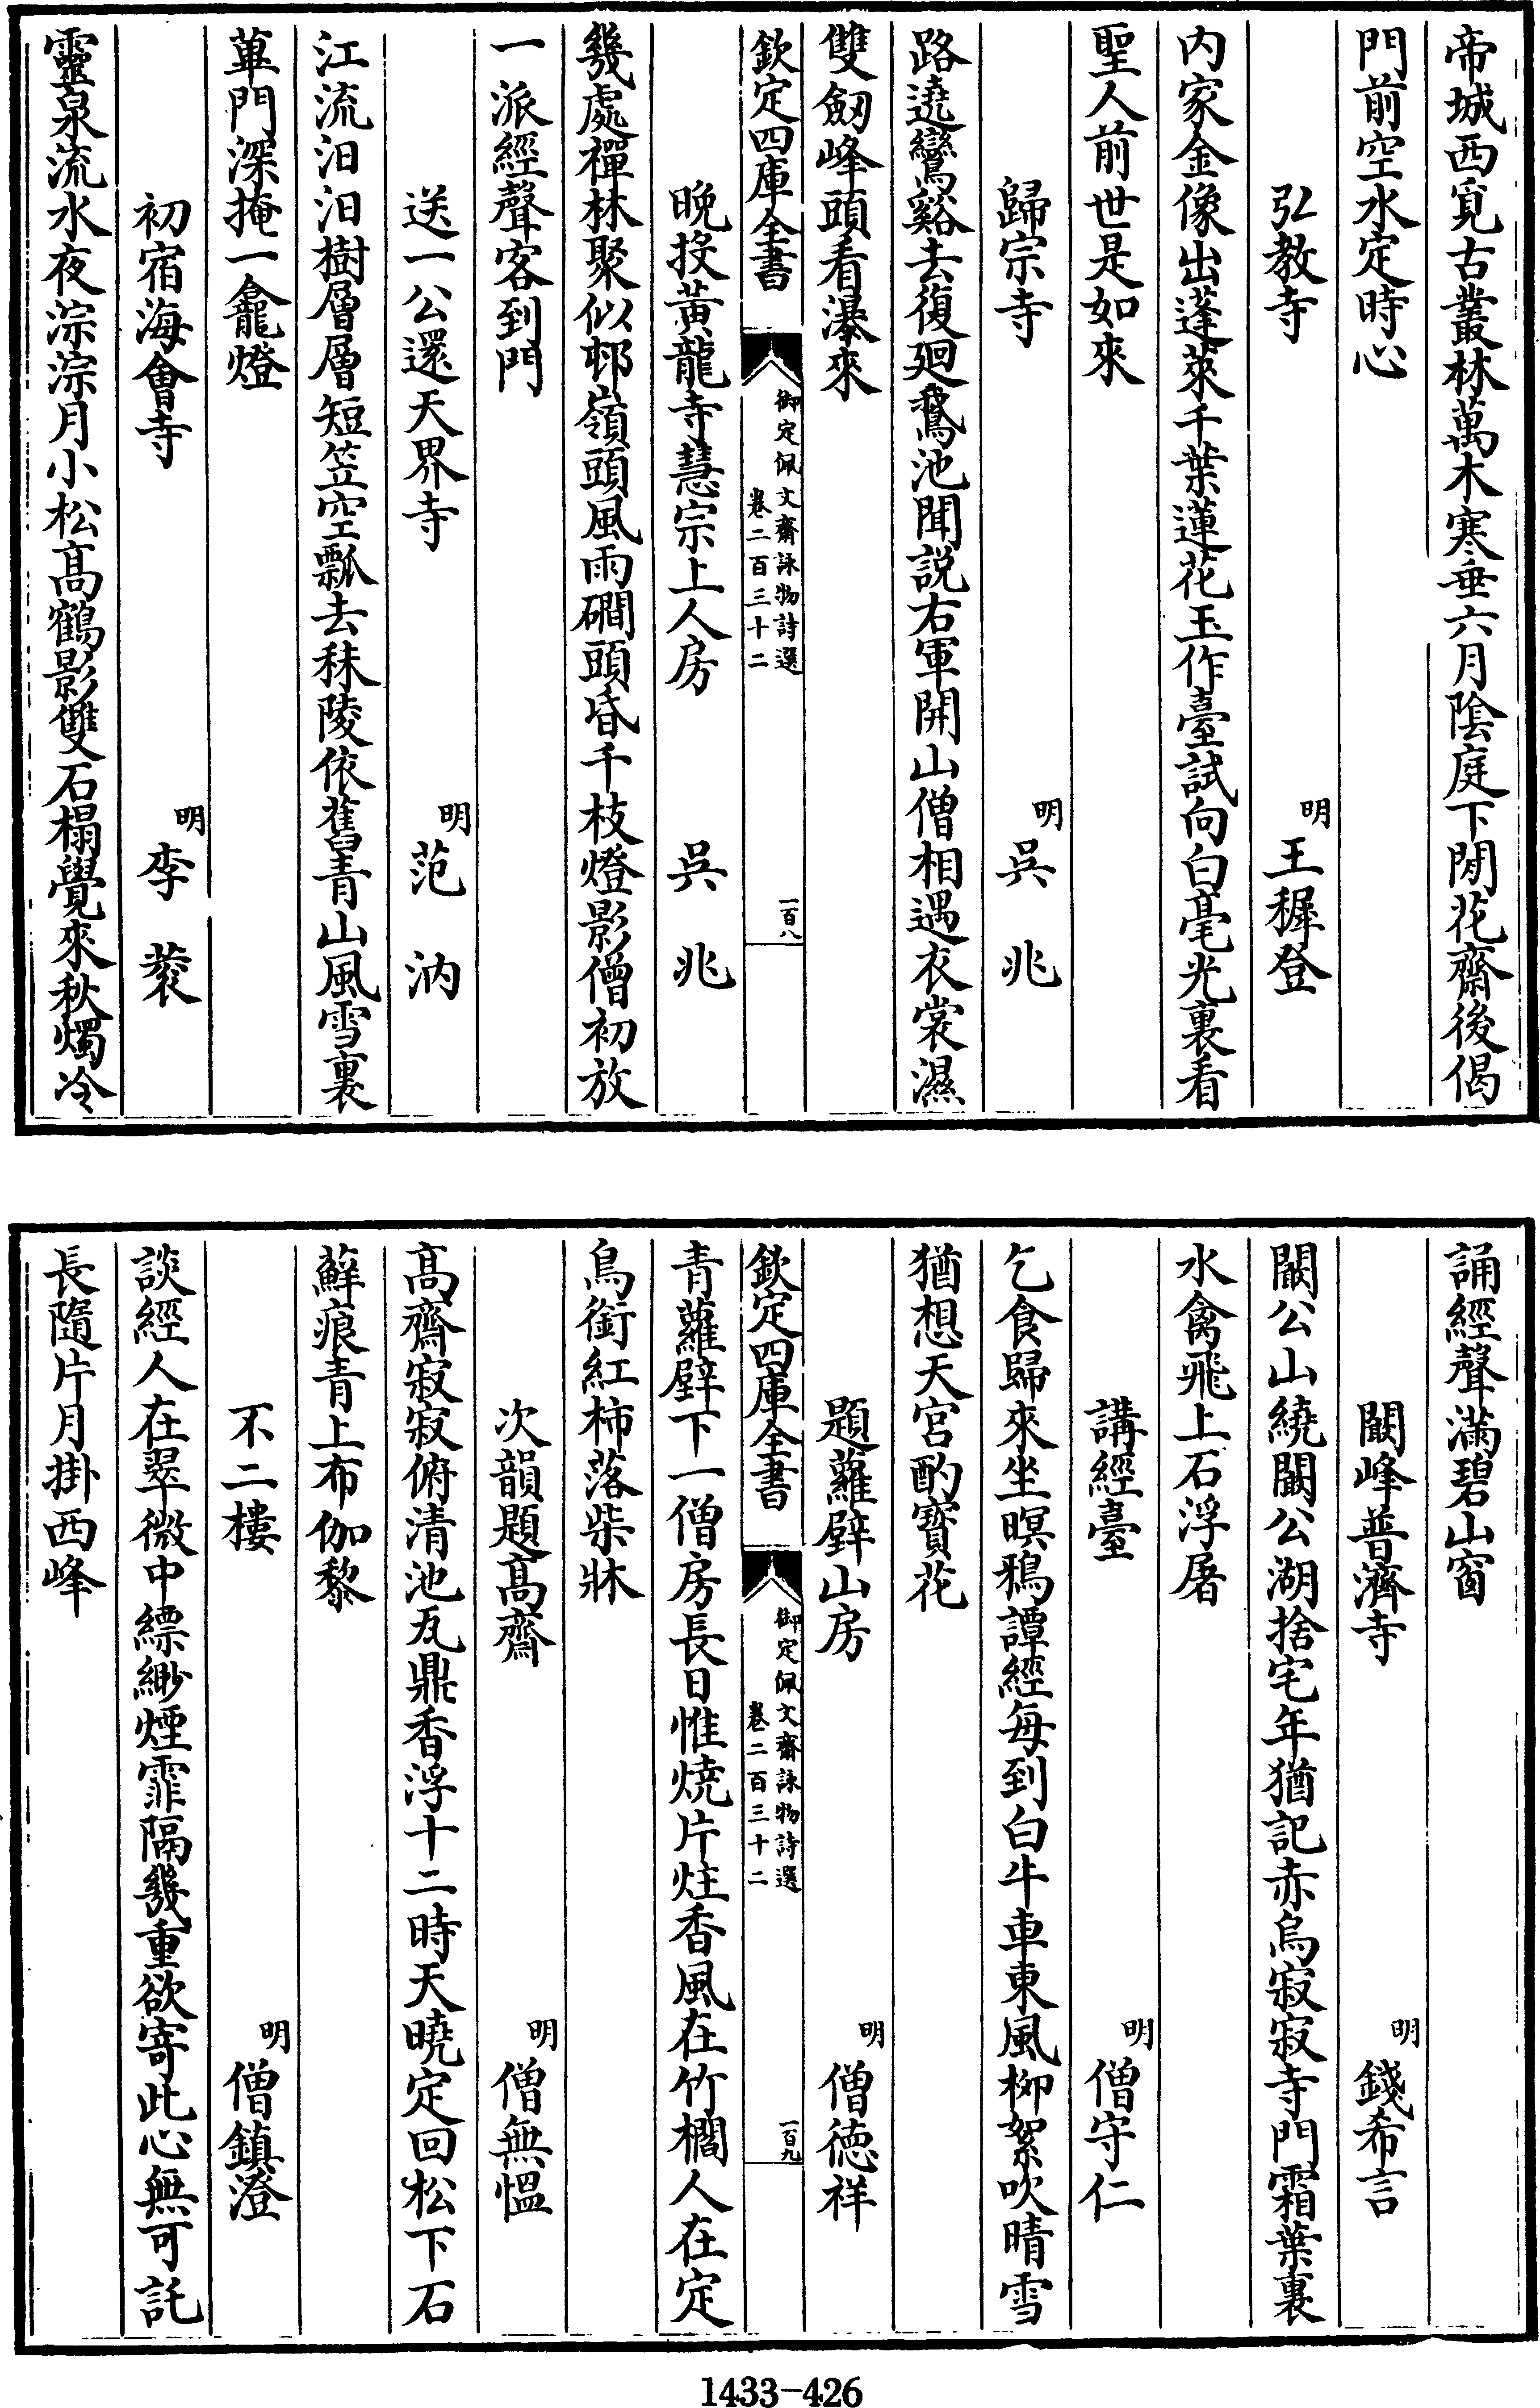 帝城西覓古叢林萬木寒垂六月陰庭下閒花齋後偈
門前空水定時心
弘教寺 明 王穉登
内家金像出蓬萊千葉蓮花玉作臺試向白毫光裏看
聖人前世是如來
歸宗寺 明 吳兆
路遶鸞谿去復廻鵞池聞説右軍開山僧相遇衣裳濕
雙劔峰頭看瀑來
欽定四庫全書 御定佩文齋詠物詩選 卷二百三十二 一百八
晚投黃龍寺慧宗上人房 吳兆
幾處禪林聚似邨嶺頭風雨磵頭昏千枝燈影僧初放
一派經聲客到門
送一公還天界寺 明 范汭
江流汩汩樹層層短笠空瓢去秣陵依舊青山風雪裏
蓽門深掩一龕燈
初宿海會寺 明 李蓘
靈泉流水夜淙淙月小松髙鶴影雙石榻覺來秋燭冷
誦經聲滿碧山窗
闞峰普濟寺 明 錢希言
闞公山繞闞公湖捨宅年猶記赤烏寂寂寺門霜葉裏
水禽飛上石浮屠
講經臺 明 僧守仁
乞食歸來坐暝鴉譚經每到白牛車東風柳絮吹晴雪
猶想天宮酌寶花
題蘿壁山房 明 僧德祥
青蘿壁下一僧房長日惟燒片炷香風在竹櫚人在定
鳥銜紅柿落柴牀
次韻題髙齋 明 僧無愠
髙齋寂寂俯清池瓦鼎香浮十二時天曉定回松下石
蘚痕青上布伽黎
不二樓 明 僧鎮澄
談經人在翠微中縹緲煙霏隔幾重欲寄此心無可託
長隨片月掛西峰
欽定四庫全書 御定佩文齋詠物詩選 卷二百三十二 一百九
1433-426